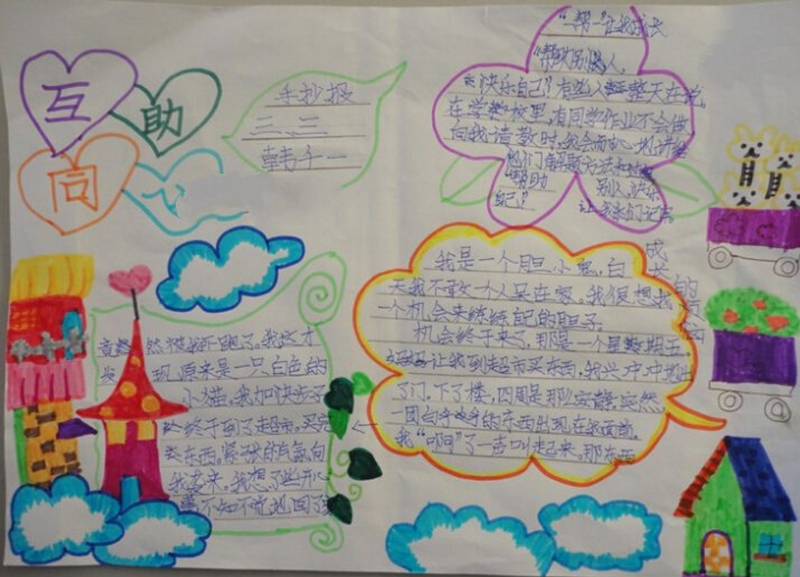 互
助
同
心
手抄报
三、三
韩子一
“帮”让我成长
“帮助别人,
快乐自己”有些人整天在说,
在学校里,有同学作业不会做
向我请教时,我会 地讲给
他们解题方法和
帮助 别人,快乐
自己” 让我们记
成长的
我是一个胆小鬼,白
天我不敢一个人呆在家。我很想找
一个机会来练练自己的胆子。
机会终于来了,那是一个星期五。
妈妈让我到超市买东西,我兴冲冲地出
了门。下了楼,四周是那么安静。突然,
一团白 的东西出现在我面前,
我“啊”了一声叫起来,那东西
竟然被我吓跑了。我这才
发现,原来是一只白色的
小猫。我加快步子
终于到了超市。买完
东西,紧张的气氛向
我袭来。我想了些开心
不知不觉地回了